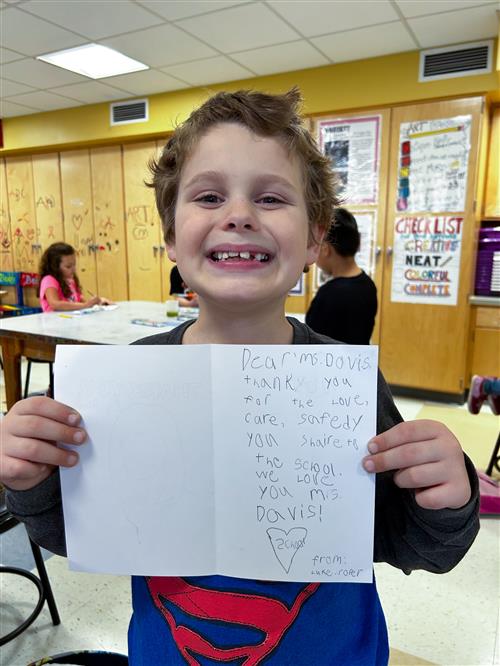 Dear Ms. Davis.
thank you
for the love,
care, safedy
you shaire to
the school.
we love
you ms.
Davis!
School
from:
Luke.roper
CHECKLIST
CREATIVE
NEAT/
COLORFUL
COMPLETE